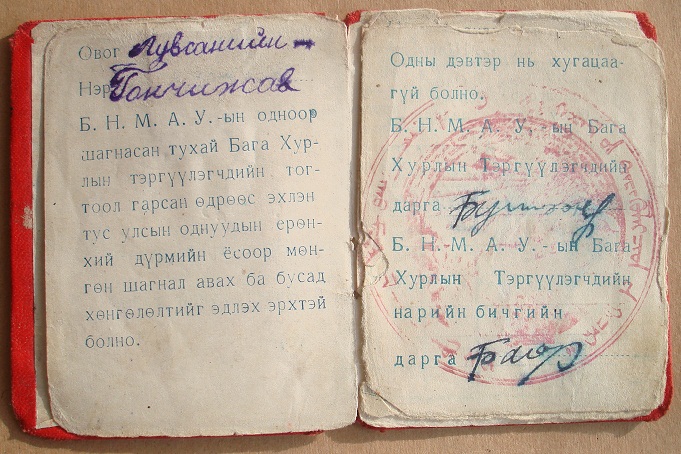 Овог Лувсанийн
Нэр Гончижав
Б. Н. М. А. У.-ын одноор
шагнасан тухай Бага Хур-
лын тэргүүлэгчдийн тог-
тоол гарсан өдрөөс эхлэн
тус улсын однуудын ерөн-
хий дүрмийн ёсоор мөн-
гөн шагнал авах ба бусад
хөнгөлөлтийг эдлэх эрхтэй
болно.
Одны дэвтэр нь хугацаа-
гүй болно.
Б. Н. М. А. У.-ын Бага
Хурлын Тэргүүлэгчдийн
дарга
Б. Н. М. А. У.-ын Бага
Хурлын Тэргүүлэгчдийн
нарийн бичгийн
дарга